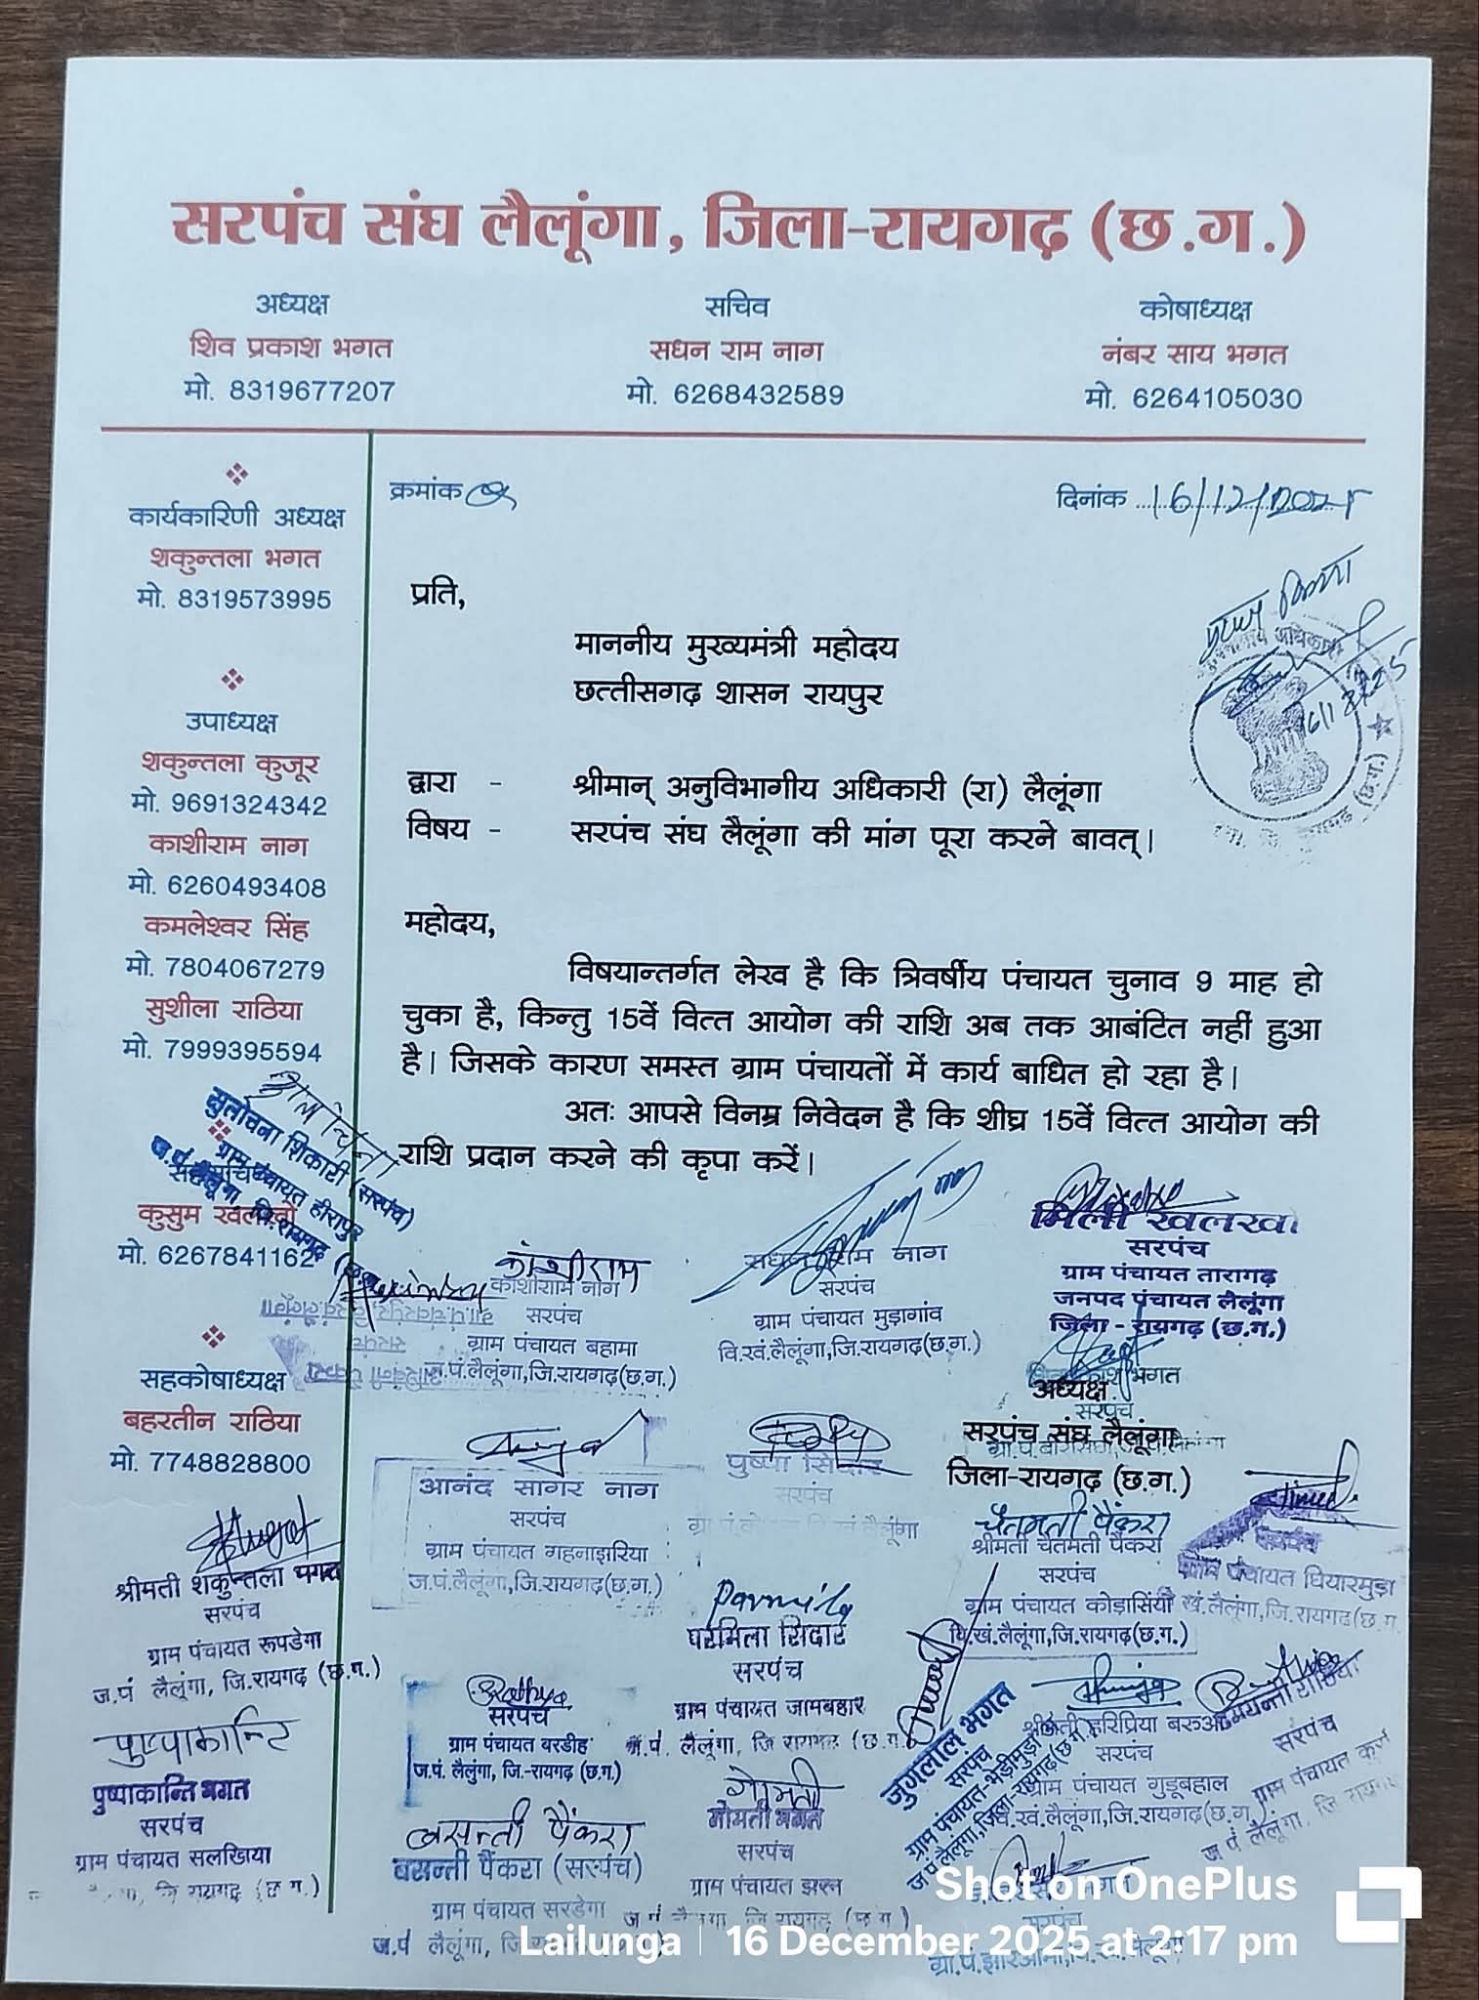 सरपंच संघ लैलूंगा, जिला-रायगढ़ (छ.ग.)
अध्यक्ष
शिव प्रकाश भगत
मो. 8319677207
सचिव
सधन राम नाग
मो. 6268432589
कोषाध्यक्ष
नंबर साय भगत
मो. 6264105030
कार्यकारिणी अध्यक्ष
शकुन्तला भगत
मो. 8319573995
उपाध्यक्ष
शकुन्तला कुजूर
मो. 9691324342
काशीराम नाग
मो. 6260493408
कमलेश्वर सिंह
मो. 7804067279
सुशीला राठिया
मो. 7999395594
कुसुम
मो. 6267841162
सहकोषाध्यक्ष
बहरतीन राठिया
मो. 7748828800
क्रमांक
दिनांक 16/12/2025
प्रति,
माननीय मुख्यमंत्री महोदय
छत्तीसगढ़ शासन रायपुर
द्वारा - श्रीमान् अनुविभागीय अधिकारी (रा) लैलूंगा
विषय - सरपंच संघ लैलूंगा की मांग पूरा करने बावत्।
महोदय,
विषयान्तर्गत लेख है कि त्रिवर्षीय पंचायत चुनाव 9 माह हो
चुका है, किन्तु 15वें वित्त आयोग की राशि अब तक आबंटित नहीं हुआ
है। जिसके कारण समस्त ग्राम पंचायतों में कार्य बाधित हो रहा है।
अतः आपसे विनम्र निवेदन है कि शीघ्र 15वें वित्त आयोग की
राशि प्रदान करने की कृपा करें।
सुलोचना शिकारी (सरपंच)
ग्राम पंचायत हीरापुर
ज.पं. लैलूंगा जि.रायगढ़
कांशीराम
काशीराम नाग
सरपंच
ग्राम पंचायत बहामा
ज.पं.लैलूंगा,जि.रायगढ़(छ.ग.)
सधन राम नाग
सरपंच
ग्राम पंचायत मुड़ागांव
वि.खं.लैलूंगा,जि.रायगढ़(छ.ग.)
मिली खलखो
सरपंच
ग्राम पंचायत तारागढ़
जनपद पंचायत लैलूंगा
जिला - रायगढ़ (छ.ग.)
भगत
अध्यक्ष
सरपंच
सरपंच संघ लैलूंगा
जिला-रायगढ़ (छ.ग.)
आनंद सागर नाग
सरपंच
ग्राम पंचायत गहनाझरिया
ज.पं.लैलूंगा,जि.रायगढ़(छ.ग.)
पुष्पा सिदार
सरपंच
लैलूंगा
चेतमती पैंकरा
श्रीमती चेतमती पैंकरा
सरपंच
ग्राम पंचायत कोड़ासिंया
वि.खं.लैलूंगा,जि.रायगढ़(छ.ग.)
सरपंच
ग्राम पंचायत घियारमुड़ा
खं.लैलूंगा,जि.रायगढ़(छ.ग
श्रीमती शकुन्तला भगत
सरपंच
ग्राम पंचायत रूपडेगा
ज.पं लैलूंगा, जि.रायगढ़ (छ.ग.)
Parmila
परमिला सिदार
सरपंच
ग्राम पंचायत जामबहार
ज.पं. लैलूंगा, जि रायगढ़ (छ.ग.)
सरपंच
ग्राम पंचायत बरडीह
ज.पं. लैलूंगा, जि.-रायगढ़ (छ.ग.)
जुगलाल भगत
सरपंच
ग्राम पंचायत-भेड़ीमुड़ा
ज.पं.लैलूंगा,जिला-रायगढ़(छ.ग.)
श्रीमती हरिप्रिया बरुआ
सरपंच
ग्राम पंचायत गुडूबहाल
वि.खं.लैलूंगा,जि.रायगढ़(छ.ग.)
दमयन्ती राठिया
सरपंच
ग्राम पंचायत
ज पं. लैलूंगा, जि रायगढ़
पुष्पाकान्ति
पुष्पाकान्ति भगत
सरपंच
ग्राम पंचायत सलखिया
जि रायगढ़ (छ ग.)
गोमती
गोमती भगत
सरपंच
ग्राम पंचायत झरन
जि रायगढ़ (छ ग.)
बसन्ती पैंकरा
बसन्ती पैंकरा (सरपंच)
ग्राम पंचायत सरडेगा
ज.पं लैलूंगा,
सरपंच
Shot on OnePlus
Lailunga | 16 December 2025 at 2:17 pm